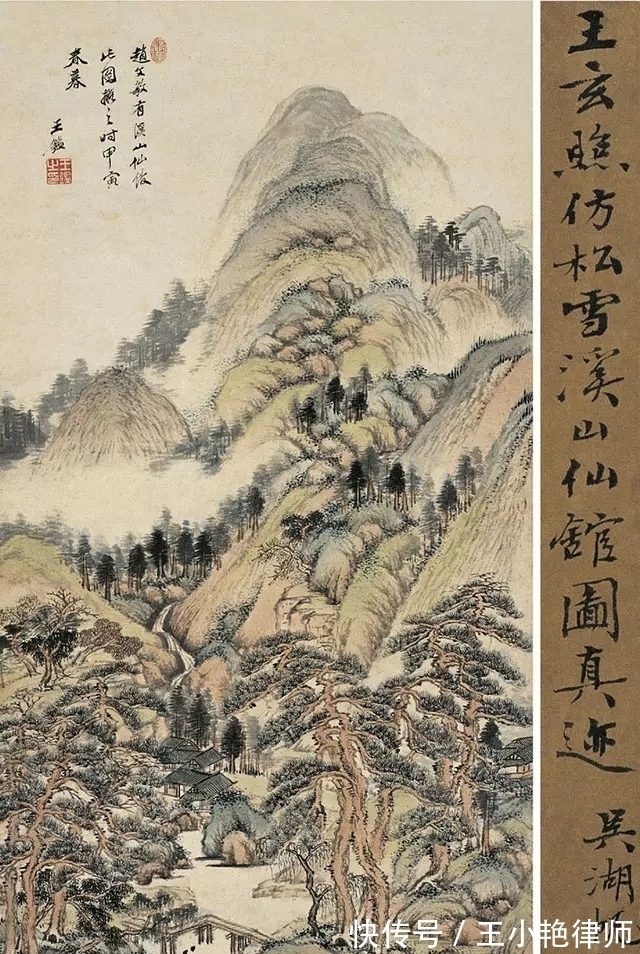 趙文敏有溪山仙館
此圖擬之時甲寅
春暮
王鑑
王玄照仿松雪溪山仙舘圖真迹
吳湖帆
快传号 / 王小艳律师